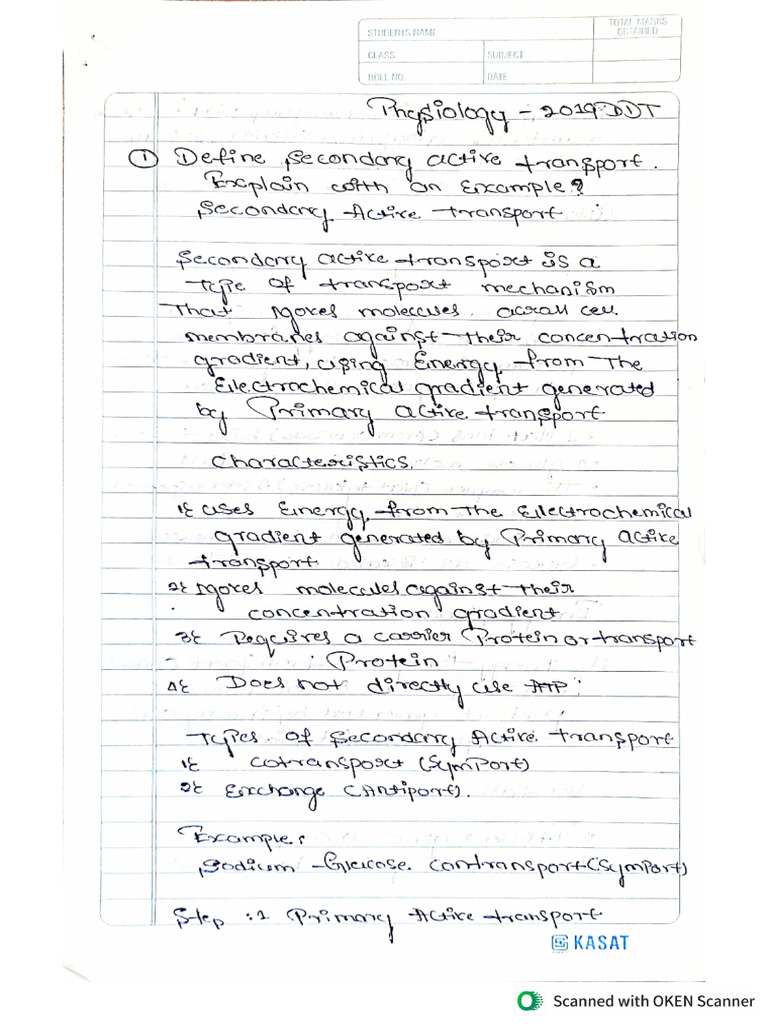 STUDENTS NAME
TOTAL MARKS
OBTAINED
CLASS
SUBJECT
ROLL NO.
DATE
Physiology - 2019 DDT
① Define secondary active transport.
Explain with an Example?
Secondary Active transport
Secondary active transport is a
Type of transport mechanism
That Moves molecules across cell
membranes against Their concentration
gradient, using Energy from The
Electrochemical gradient generated
by Primary active transport
Characteristics.
1} uses Energy from The Electrochemical
gradient generated by Primary active
transport
2} Moves molecules against Their
concentration gradient
3} Requires a carrier Protein or transport
Protein
4} Does not directly use ATP
Types of Secondary Active transport
1} cotransport (SymPort)
2} Exchange (Antiport).
Example:
Sodium-Glucose Contransport (SymPort)
Step :1 Primary Active transport
KASAT
Scanned with OKEN Scanner